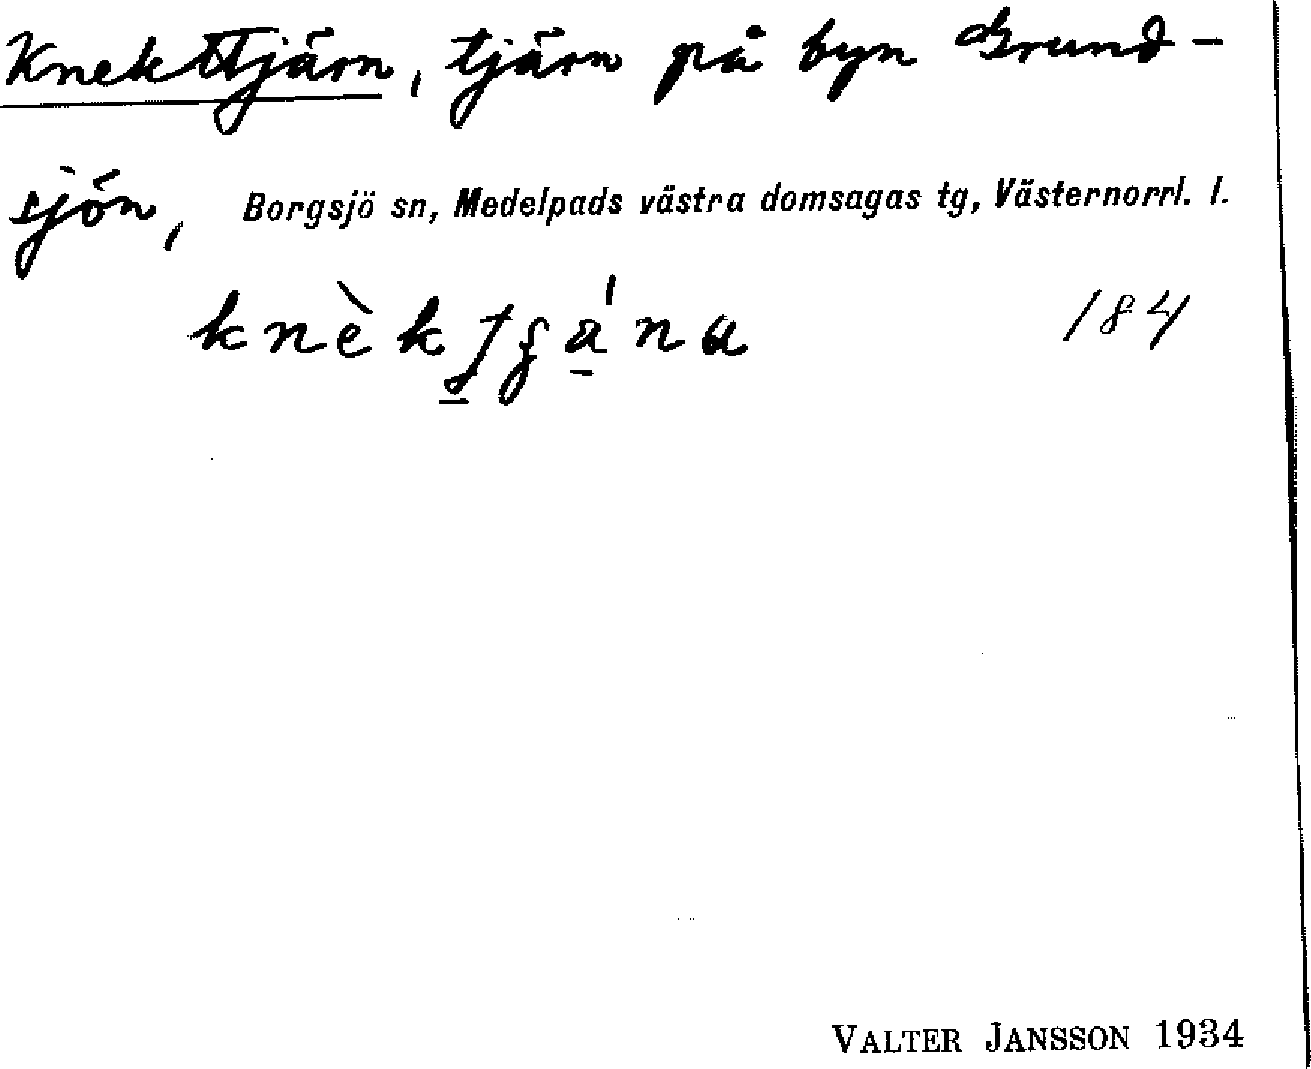 Knekttjärn, tjärn på byn Grund-
sjön, Borgsjö sn, Medelpads västra domsagas tg, Västernorrl. l.
184
VALTER JANSSON 1934